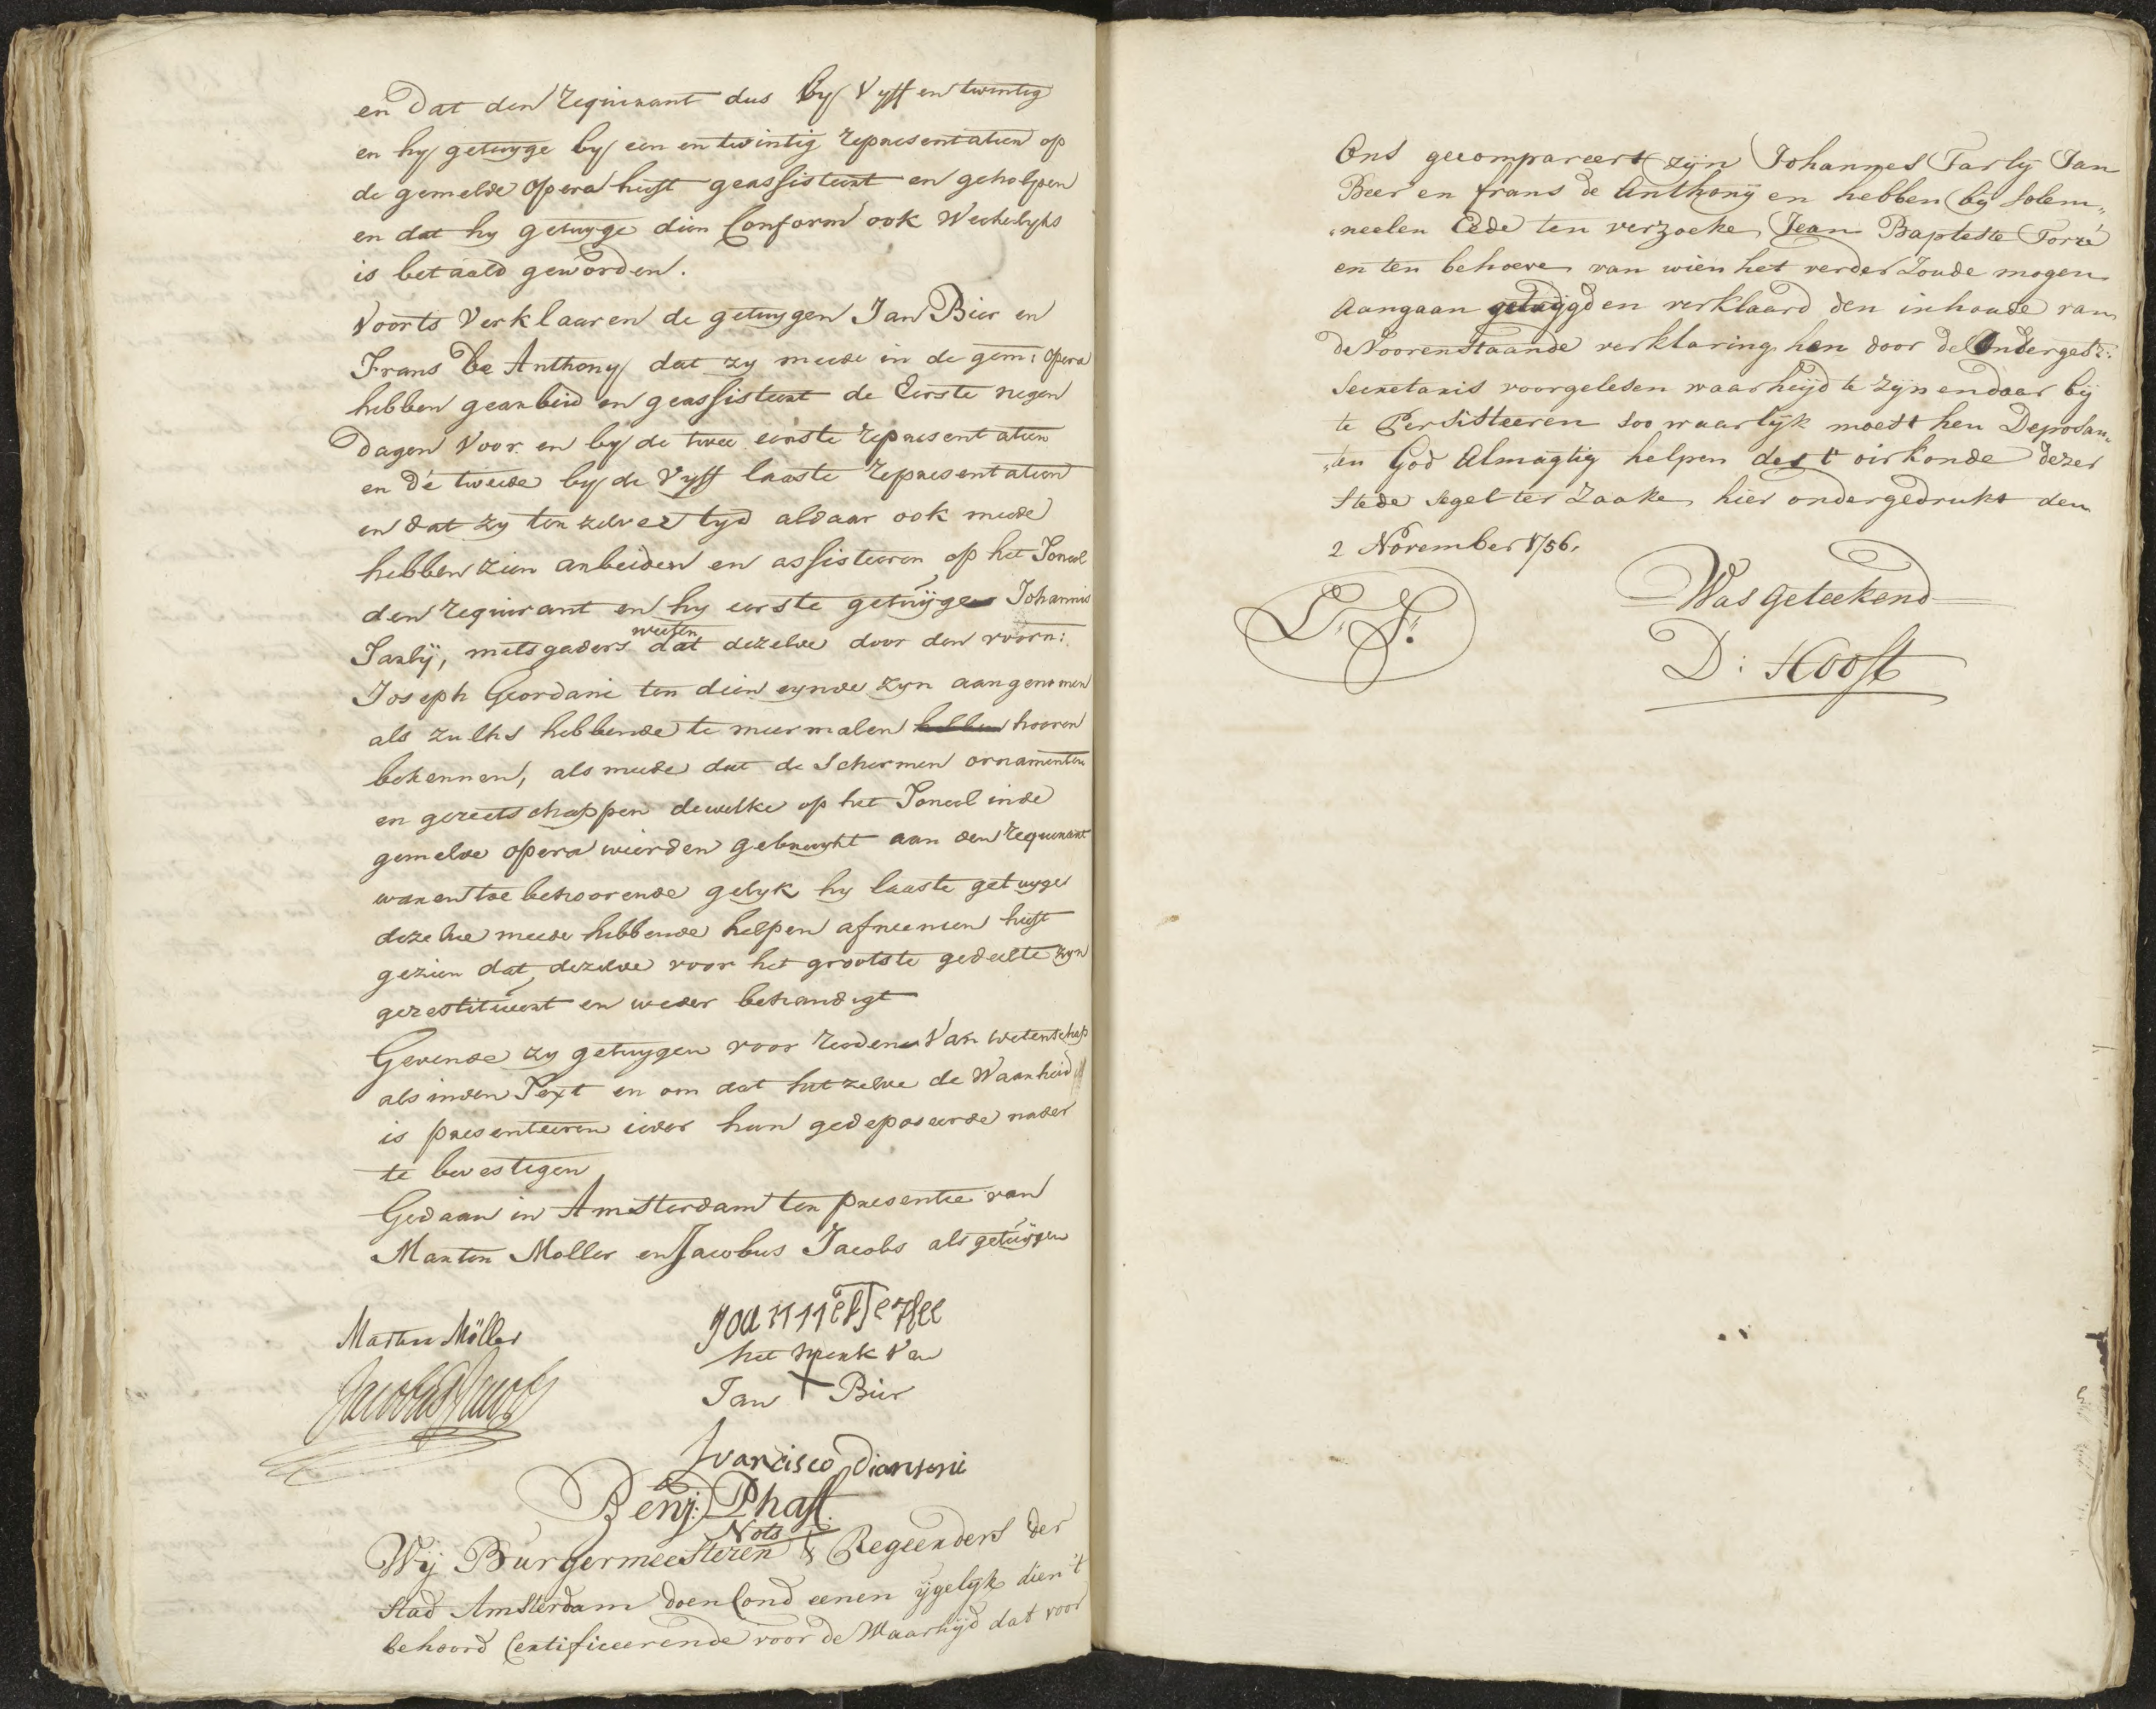 en dat den requirant dus by Vyff en twintig
en hy getuyge by een en twintig representatien op
de gemelde opera heeft geassisteert en geholpen
en dat hy getuyge dien Conform ook Weekelyks
is betaald geworden.
Voorts Verklaaren de getuygen Jan Bier en
Frans De Anthony dat zy meede in de gem: opera
hebben gearbeid en geassisteert de Eerste negen
dagen Voor en by de twee eerste representatien
en de tweede by de Vyff laaste representatien
en dat zy ten zelver tyd aldaar ook meede
hebben zien arbeiden en assisteeren op het Toneel
den requirant en hy eerste getuyge Johannis
Tarly, mitsgaders weeten dat dezelve door den voorn:
Joseph Geordani ten dien eynde zyn aangenomen
als zulks hebbende te meermalen hebben hooren
bekennen, als meede dat de Schermen ornamenten
en gereetschappen dewelke op het Toneel inde
gemelde opera wierden gebruykt aan den requirant
waren toebehoorende gelyk hy laaste getuyge
dezelve meede hebbende helpen afneemen heeft
gezien dat dezelve voor het grootste gedeelte zyn
gerestitueert en weder behandigt
Gevende zy getuygen voor reedenen Van wetenschap
als inden Text en om dat het zelve de Waarheid
is presenteeren ieder hun gedeposeerde nader
te bevestigen
Gedaan in Amsterdam ten presentie van
Marten Moller en Jacobus Jacobs als getuygen
Marten Möller
het merk Van
Jacobus Jacobs
Jan X Bier
Francisco Diantoni
Benj: Phaff
Nots
Wij Burgermeesteren & Regeerders der
Stad Amsterdam doen Cond eenen ijgelyk dien 't
behoord Certificeerende voor de Waarhijd dat voor
Ons gecompareert zijn Johannes Tarlij Jan
Beer en frans de Anthonij en hebben bij solem„
„neelen Eede ten verzoeke Jean Bapteste Torré
en ten behoeve van wien het verder Zoude mogen
Aangaan getuijgd en verklaard den inhoude van
de Voorenstaande verklaring hen door de Ondergest:
Secretaris voorgelesen waarheijd te zijn en daar bij
te Persisteeren soo waarlijk moest hen Deposan„
„ten God Almagtig helpen des t' oirkonde dezer
Stede segel ter Zaake hier ondergedrukt den
2 November 1756.
L: S:
Was geteekend
D: Hooft